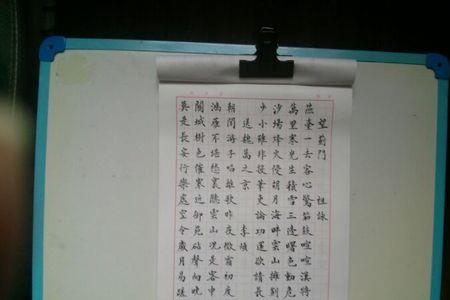 望薊門 祖詠
燕臺一去客心驚笳鼓喧喧漢將
萬里寒光生積雪三邊曙色動危
沙場烽火侵胡月海畔雲山擁薊
少小雖非投筆吏論功還欲請長
送魏萬之京 李頎
朝聞游子唱離歌昨夜微霜初度
鴻雁不堪愁裏聽雲山況是客中
關城樹色催寒近御苑砧聲向晚
莫是長安行樂處空令歲月易蹉